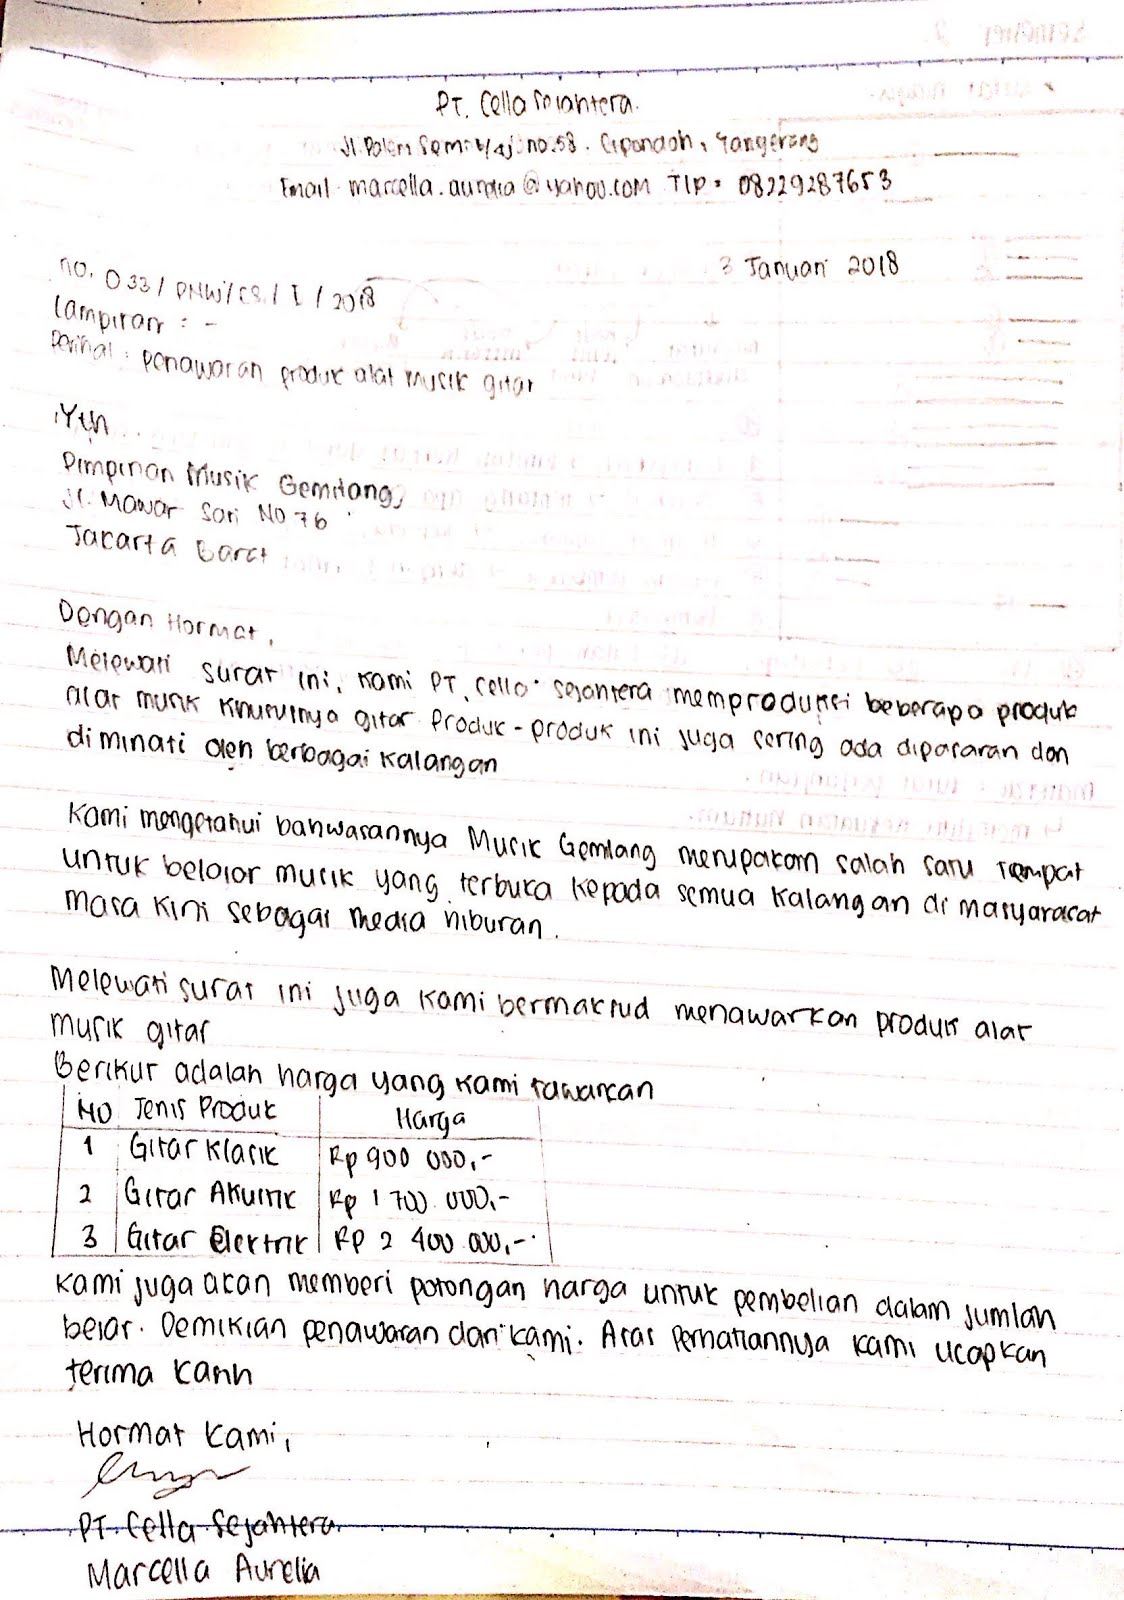 PT. Cella Sejahtera.
Jl. Palem Semi no.58. Cipondoh, Tangerang
Email. marcella.aurelia@yahoo.com Tlp. 08229287653
3 Januari 2018
no. 033/PNW/CS/I/2018
Lampiran : -
Perihal : penawaran produk alat musik gitar
Yth
Pimpinan Musik Gemilang,
Jl. Mawar Sari No 76
Jakarta Barat
Dengan Hormat,
Melewati surat ini, kami PT. Cella Sejahtera memproduksi beberapa produk
alat musik khususnya gitar produk-produk ini juga sering ada dipasaran dan
diminati oleh berbagai kalangan
Kami mengetahui bahwasannya Musik Gemilang merupakam salah satu tempat
untuk belajar musik yang terbuka kepada semua kalangan di masyarakat
masa kini sebagai media hiburan.
Melewati surat ini juga kami bermaksud menawarkan produk alat
musik gitar
Berikut adalah harga yang kami tawarkan
NO Jenis Produk Harga
1 Gitar Klasik Rp 900 000,-
2 Gitar Akustik Rp 1 700.000,-
3 Gitar Elektrik Rp 2 400.000,-
kami juga akan memberi potongan harga untuk pembelian dalam jumlah
besar. Demikian penawaran dari kami. Atas Perhatiannya kami ucapkan
terima kasih
Hormat kami,
PT. Cella Sejahtera
Marcella Aurelia